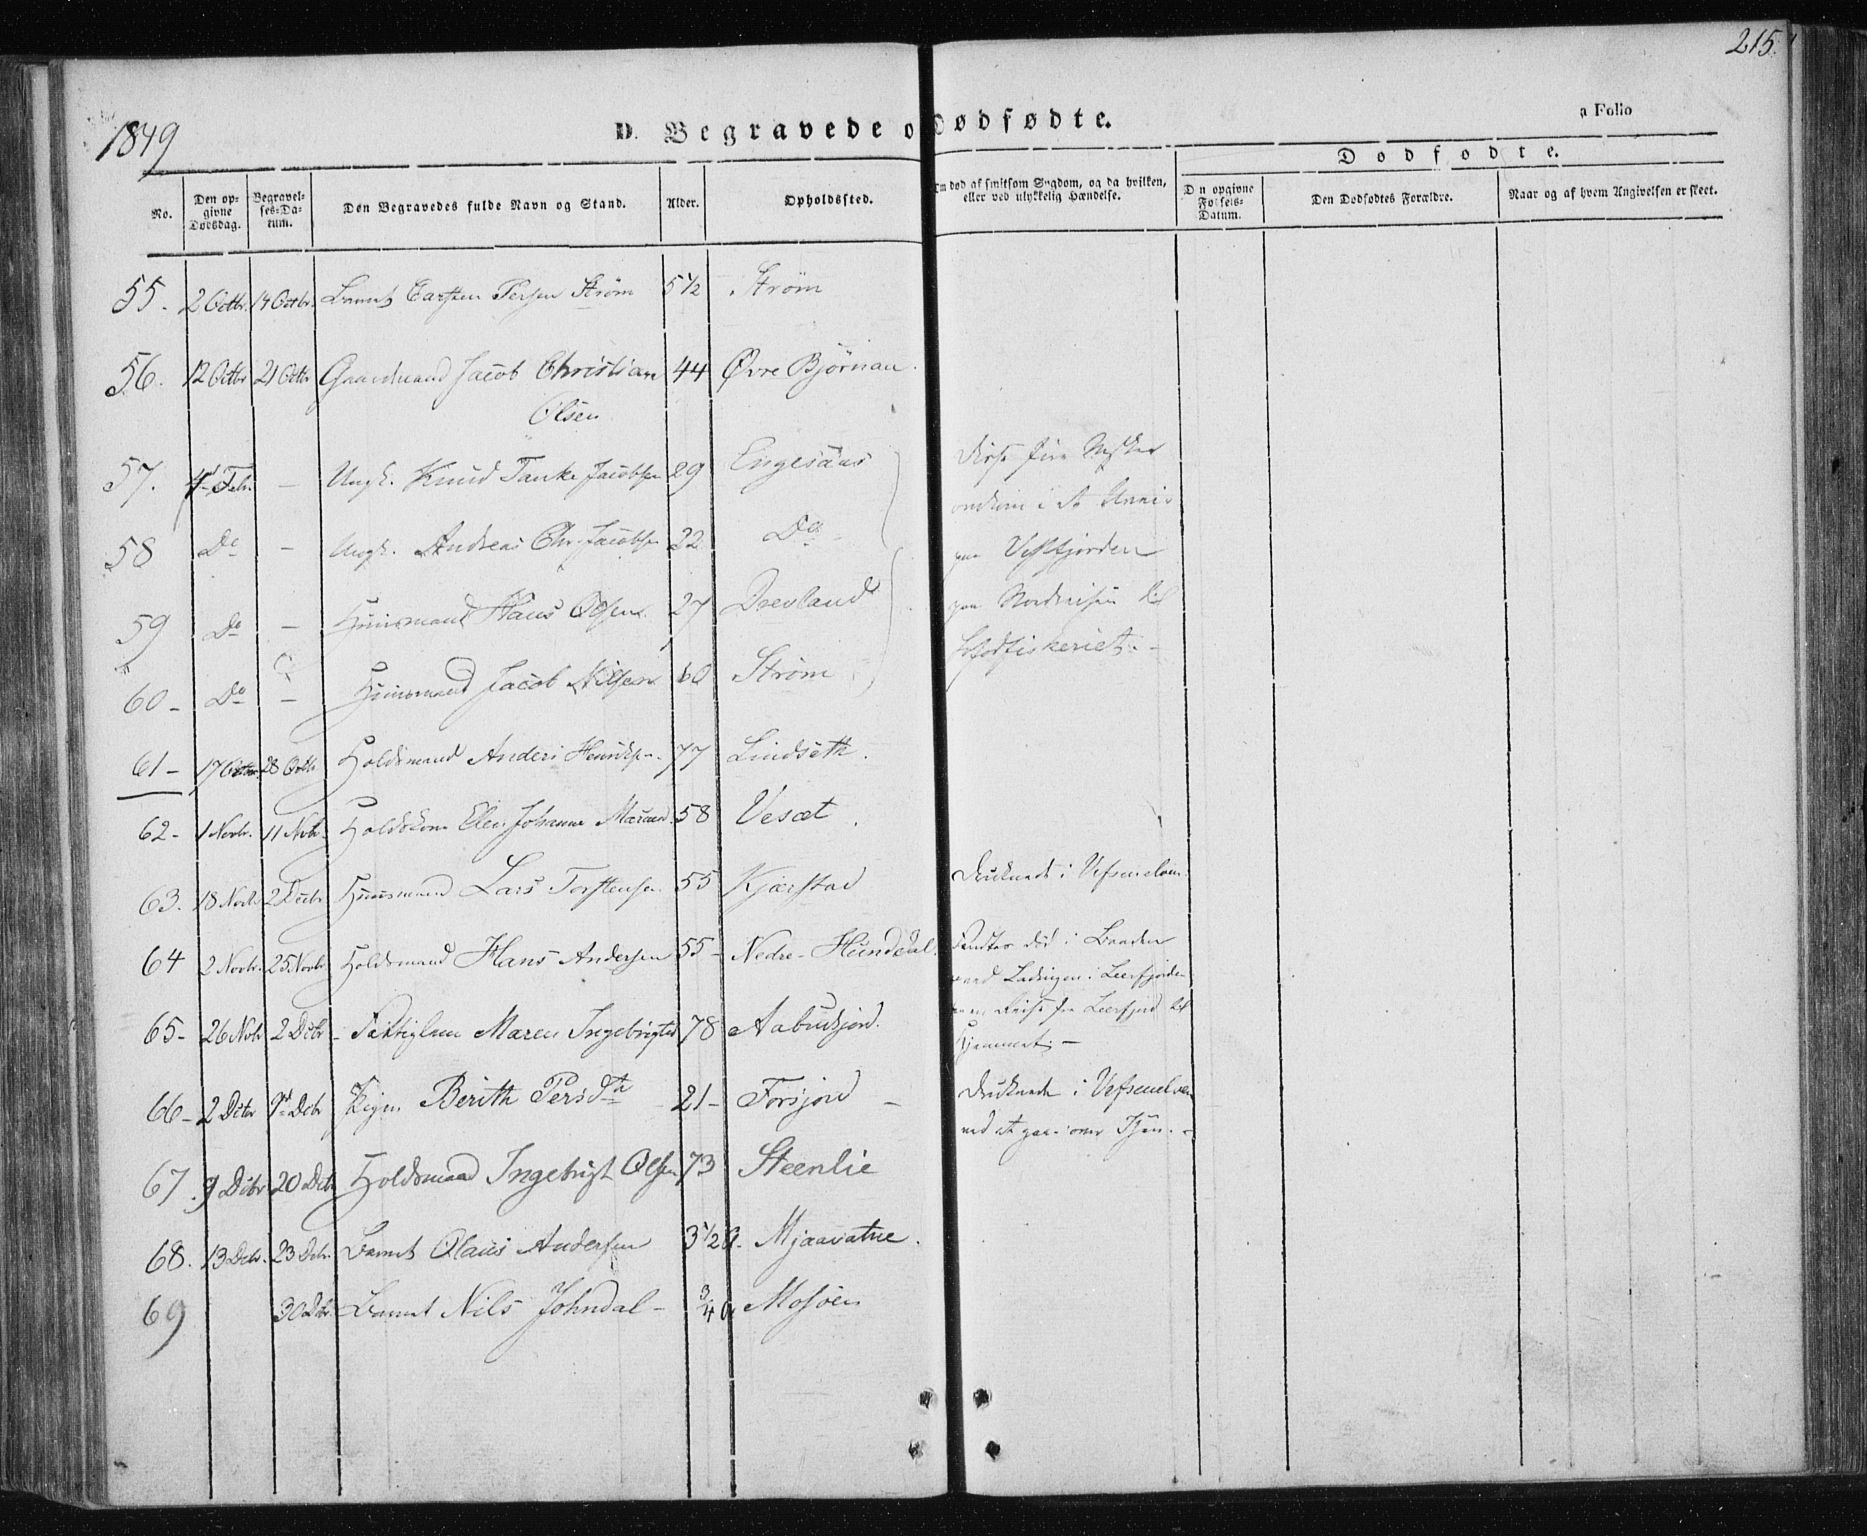 215.
1849
D. Begravede o dødfødte.
a Folio
Dødfødte.
No.
Den opgivne Dødsdag.
Begravelses-Datum.
Den Begravedes fulde Navn og Stand.
Alder.
Opholdssted.
Om død af smitsom Sygdom, og da hvilken, eller ved ulykkelig Hændelse.
Den opgivne Fødsels-Datum.
Den Dødfødtes Forældre.
Naar og af hvem Angivelsen er skeet.
55. 2 Octbr. 14 Octbr. Barnet Carsten Persen Strøm 5 1/2 Strøm
56. 12 Octbr 21 Octbr Gaardmand Jacob Christian 44 Øvre Bjørnaa.
Olsen
57. 4d Febr. - Ungk. Knud Tanke Jacobsen 29 Engesaas Disse fire Mennesker
omkom i
58 Do - Ungk. Andreas Chr. Jacobsen 22 Do paa Vestfjorden
59 Do - Huusmand Hans Olsen 27 Drevland paa Nordreisen til
Lofodfiskeriet. -
60 - Do - Huusmand Jacob Nilsen 60 Strøm
61 - 17 Octbr. 28 Octbr. Foldsmand Anders Henriksen. 77 Lindseth.
62 - 1 Novbr. 11 Novbr. Foldskone Elen Johanna 58 Vesæt.
63. 18 Novbr 2 Decbr Huusmand Lars Torstensen 55 Kjærstad druknede i Vefsenelven
64 2 Novbr. 25 Novbr Foldsmand Hans Andersen 55 - Nedre-Hundal. Fandtes død i Baaden
ved i Leerfjorden
paa Reise fra Leerfjord til
Hjemmet. -
65 - 26 Nobr 2 Decbr - Fattiglem Maren Ingebrigtsd 78 Aabudsjord.
66 - 2 Dcbr 9d Dcbr Pigen Berith Persdtr 21 - Forsjord - druknede i Vefsenelven
ved at gaae over Isen. -
67. 9 Dcbr 20 Dcbr Foldsmand Ingebrigt Olsen 73 Steenlie
68. 13 Dcbr. 23 Dcbr. Barnet Olaus Andersen 3 1/2 A. Mjaavatne.
69 30 Dcbr Barnet Nils Johndal - 3/4 A Mosøen